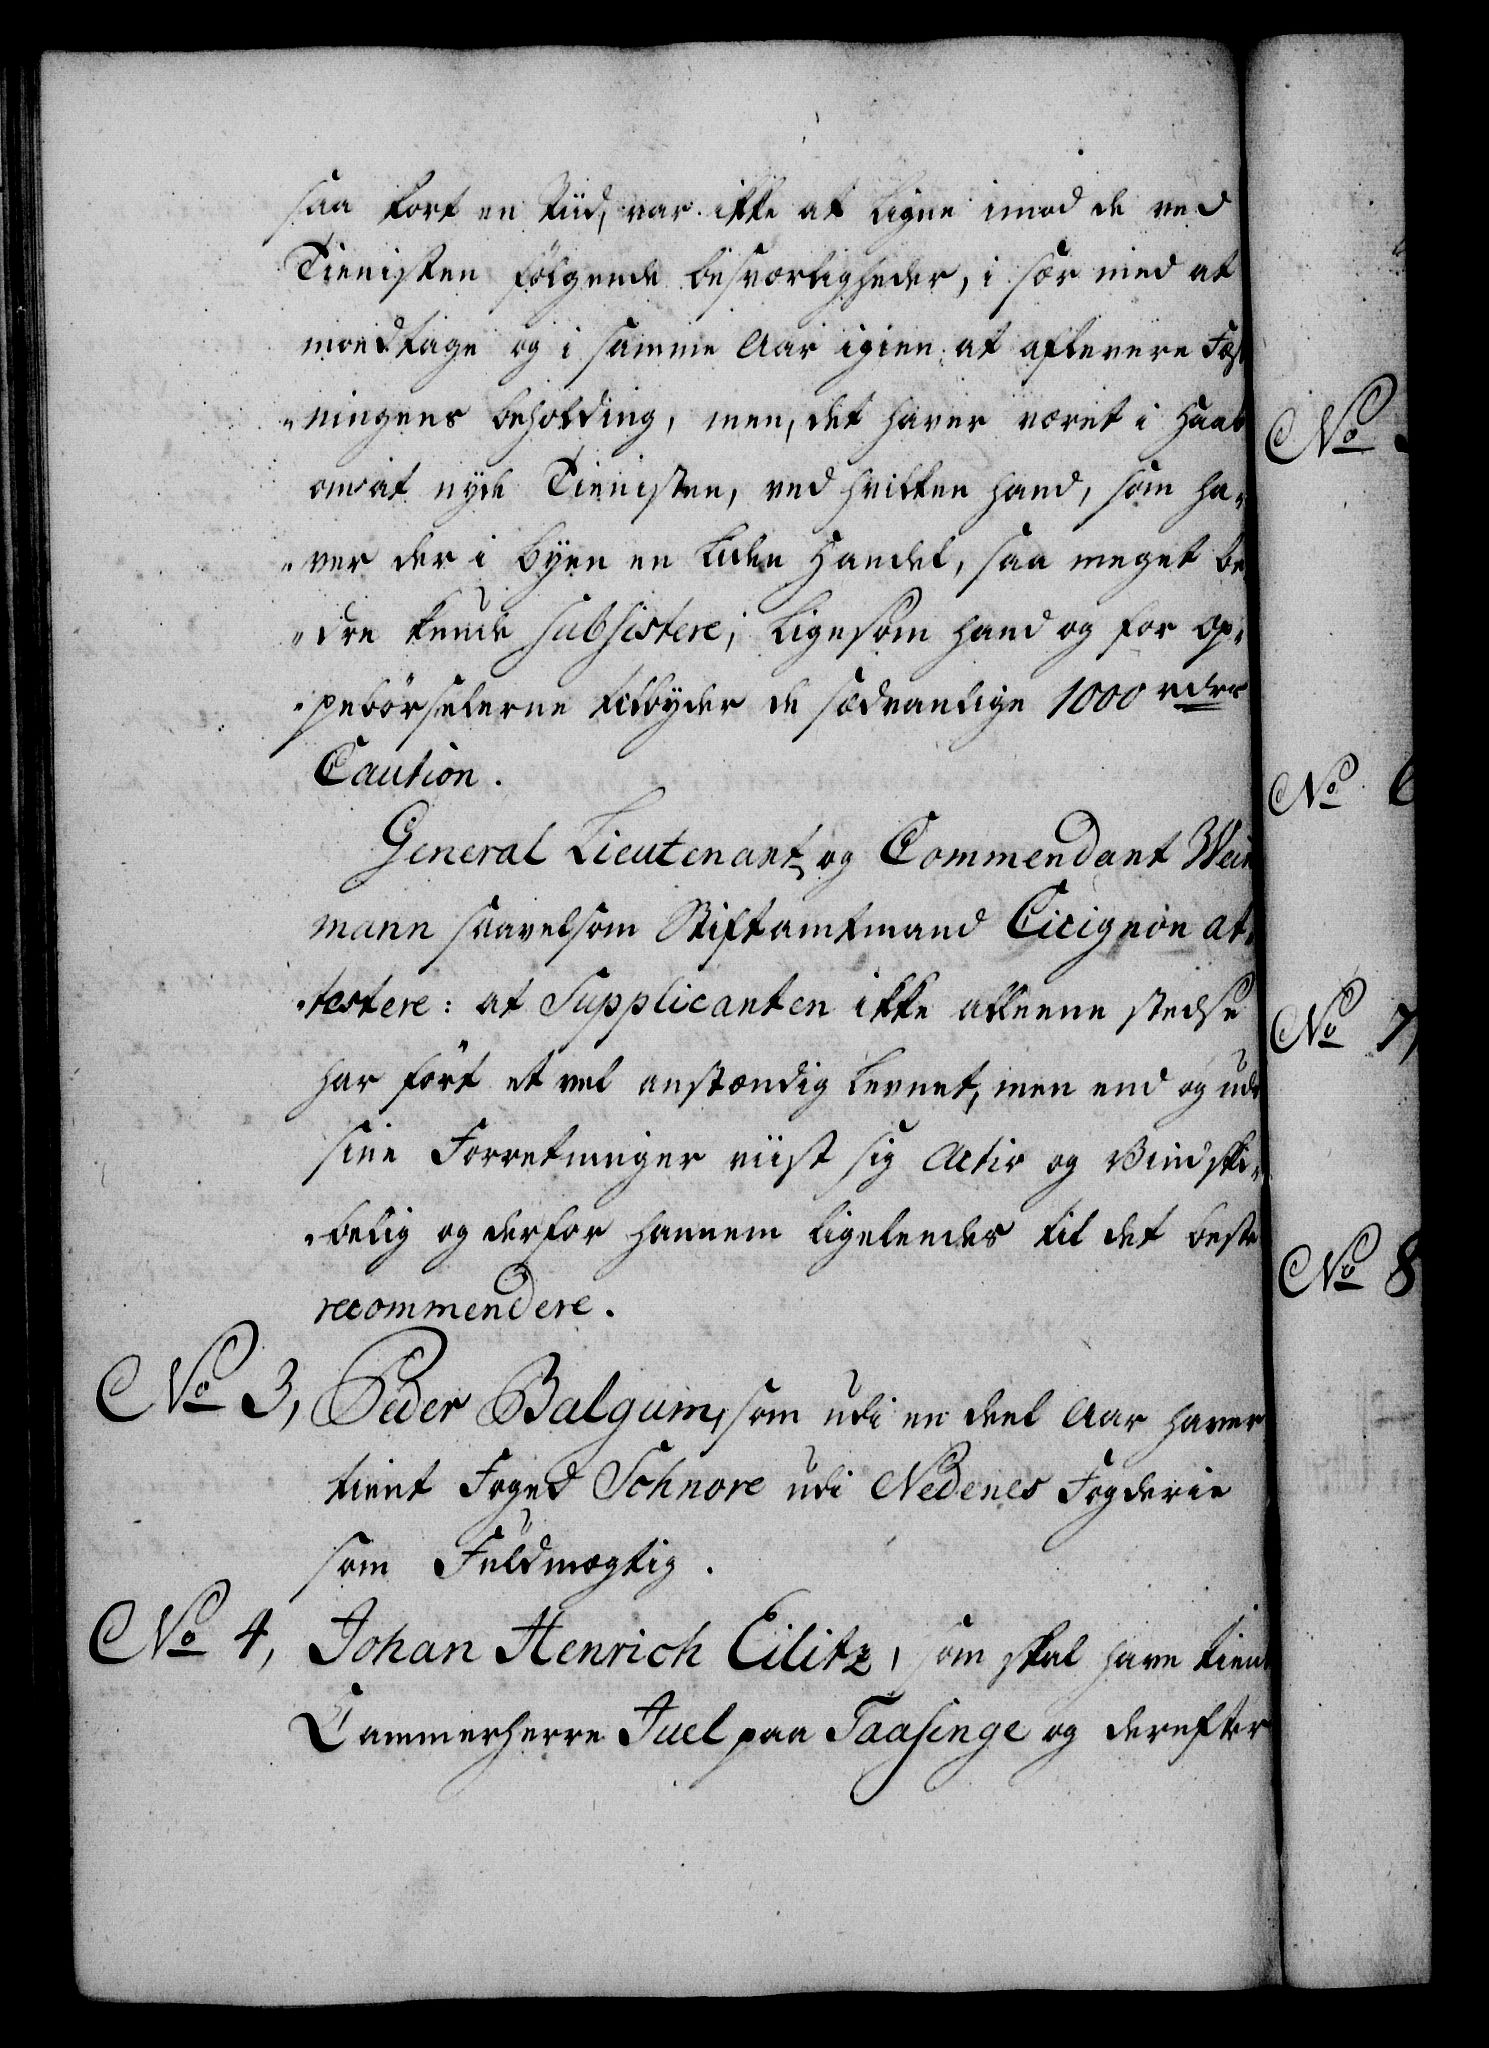 saa kort en Tiid, var ikke at ligne imod de ved
Tienisten følgende besværligheder, i sær med at
modtage og i samme Aar igien at aflevere Fæst
-ningens beholding, men, det haver været i Haab
om at nyde Tienisten, ved hvilken hand, som ha-
-ver der i Byen en liden Handel, saa meget be-
-dre kunde subsistere; ligesom hand og for Op-
-pebørselerne tilbyder de sædvanlige 1000 rdrs
Caution.
General Lieutenant og Commendant Wei
mann saavelsom Stiftamtmand Cicignon at-
-testere: at Supplicanten ikke alleene stedse
har ført et vel anstændig levnet, men end og udi
sine Forretninger viist sig Activ og Vindski-
-belig og derfor hannem ligeleedes til det beste
recommendere.
No 3, Peder Balgum, som udi en deel Aar haver
tient Foged Schnore udi Nedenes Fogderie
som Fuldmægtig.
No 4, Johan Henrich Eilitz, som skal have tient
Cammerherre Juel paa Taasinge og derefter
No
No 6
No 7,
No 8